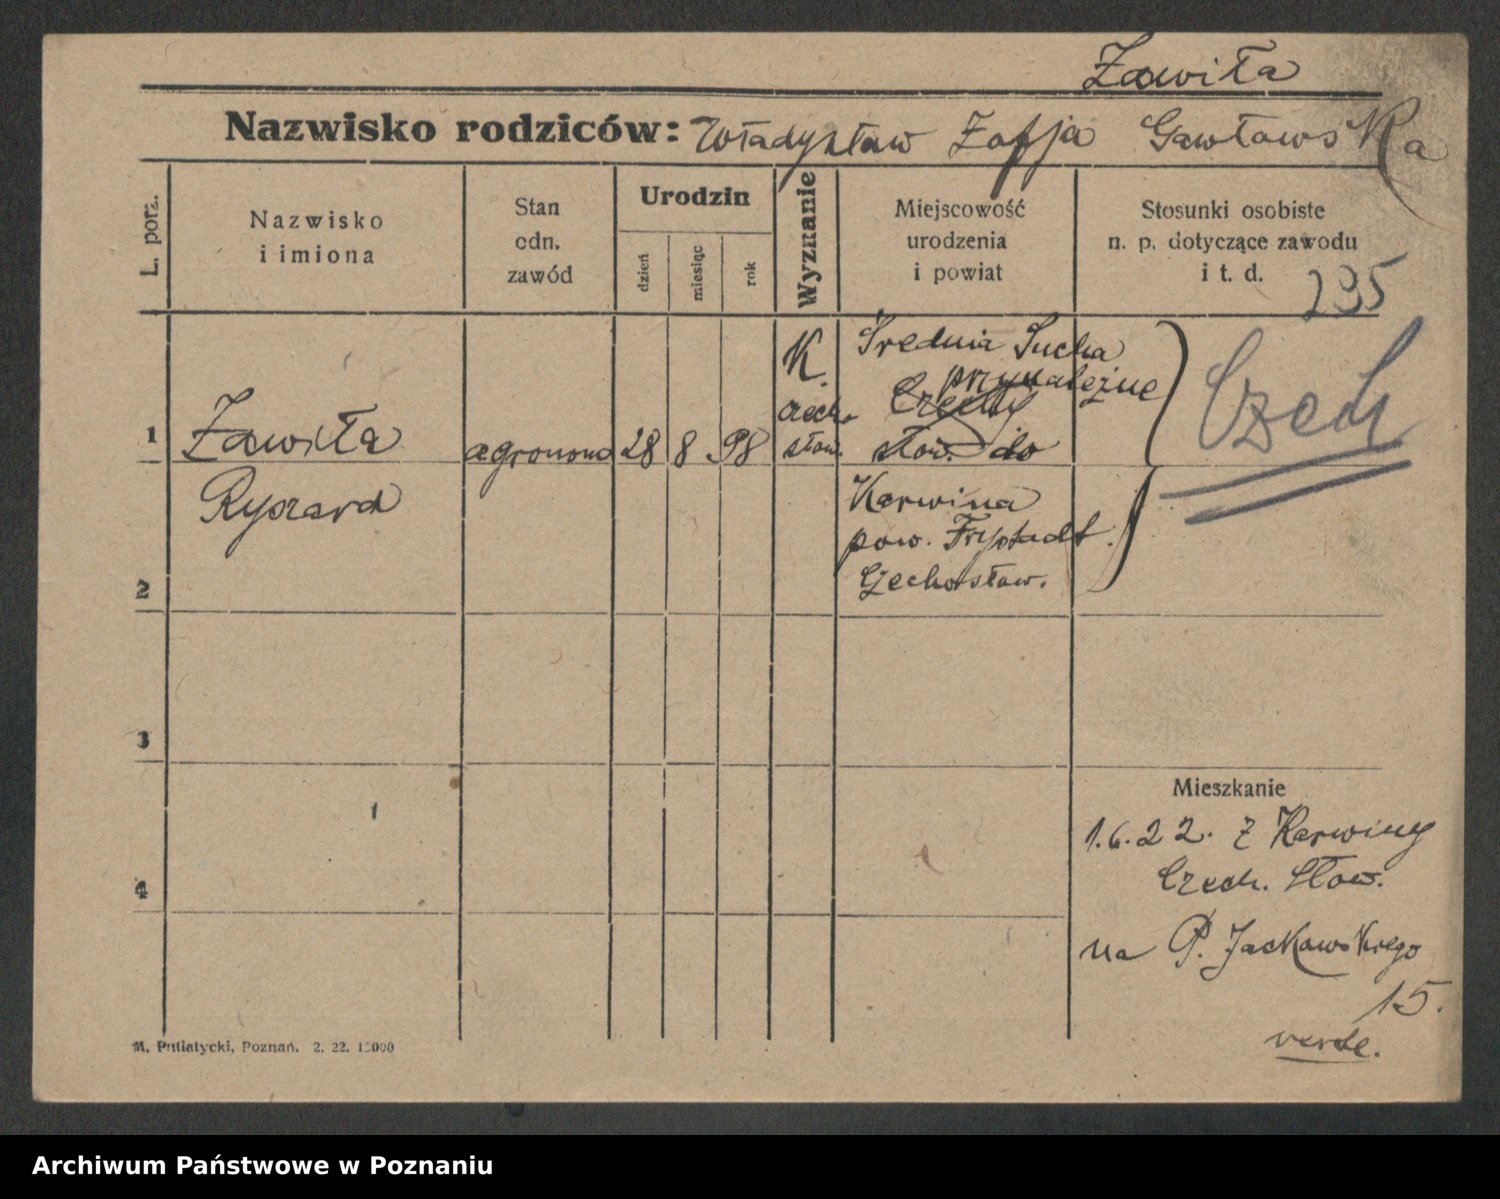 Zawiła
Nazwisko rodziców: Władysław Zofja Gawłowska
L. porz.
Nazwisko
i imiona
Stan
odn.
zawód
Urodzin
dzień
miesiąc
rok
Wyznanie
Miejscowość
urodzenia
i powiat
Stosunki osobiste
n. p. dotyczące zawodu
i t. d.
235
1
Zawiła
Ryszard
agronom
28
8
98
K.
czech.
słow.
Średnia Sucha
przynależne
Czechy
słow. do
Karwina
pow. Frystadt.
Czechosław.
Czech
2
3
4
Mieszkanie
1.6.22. z Karwiny
Czech. Słow.
na P. Jackowskiego
15.
verte.
M. Putiatycki, Poznań. 2. 22. 15000
Archiwum Państwowe w Poznaniu